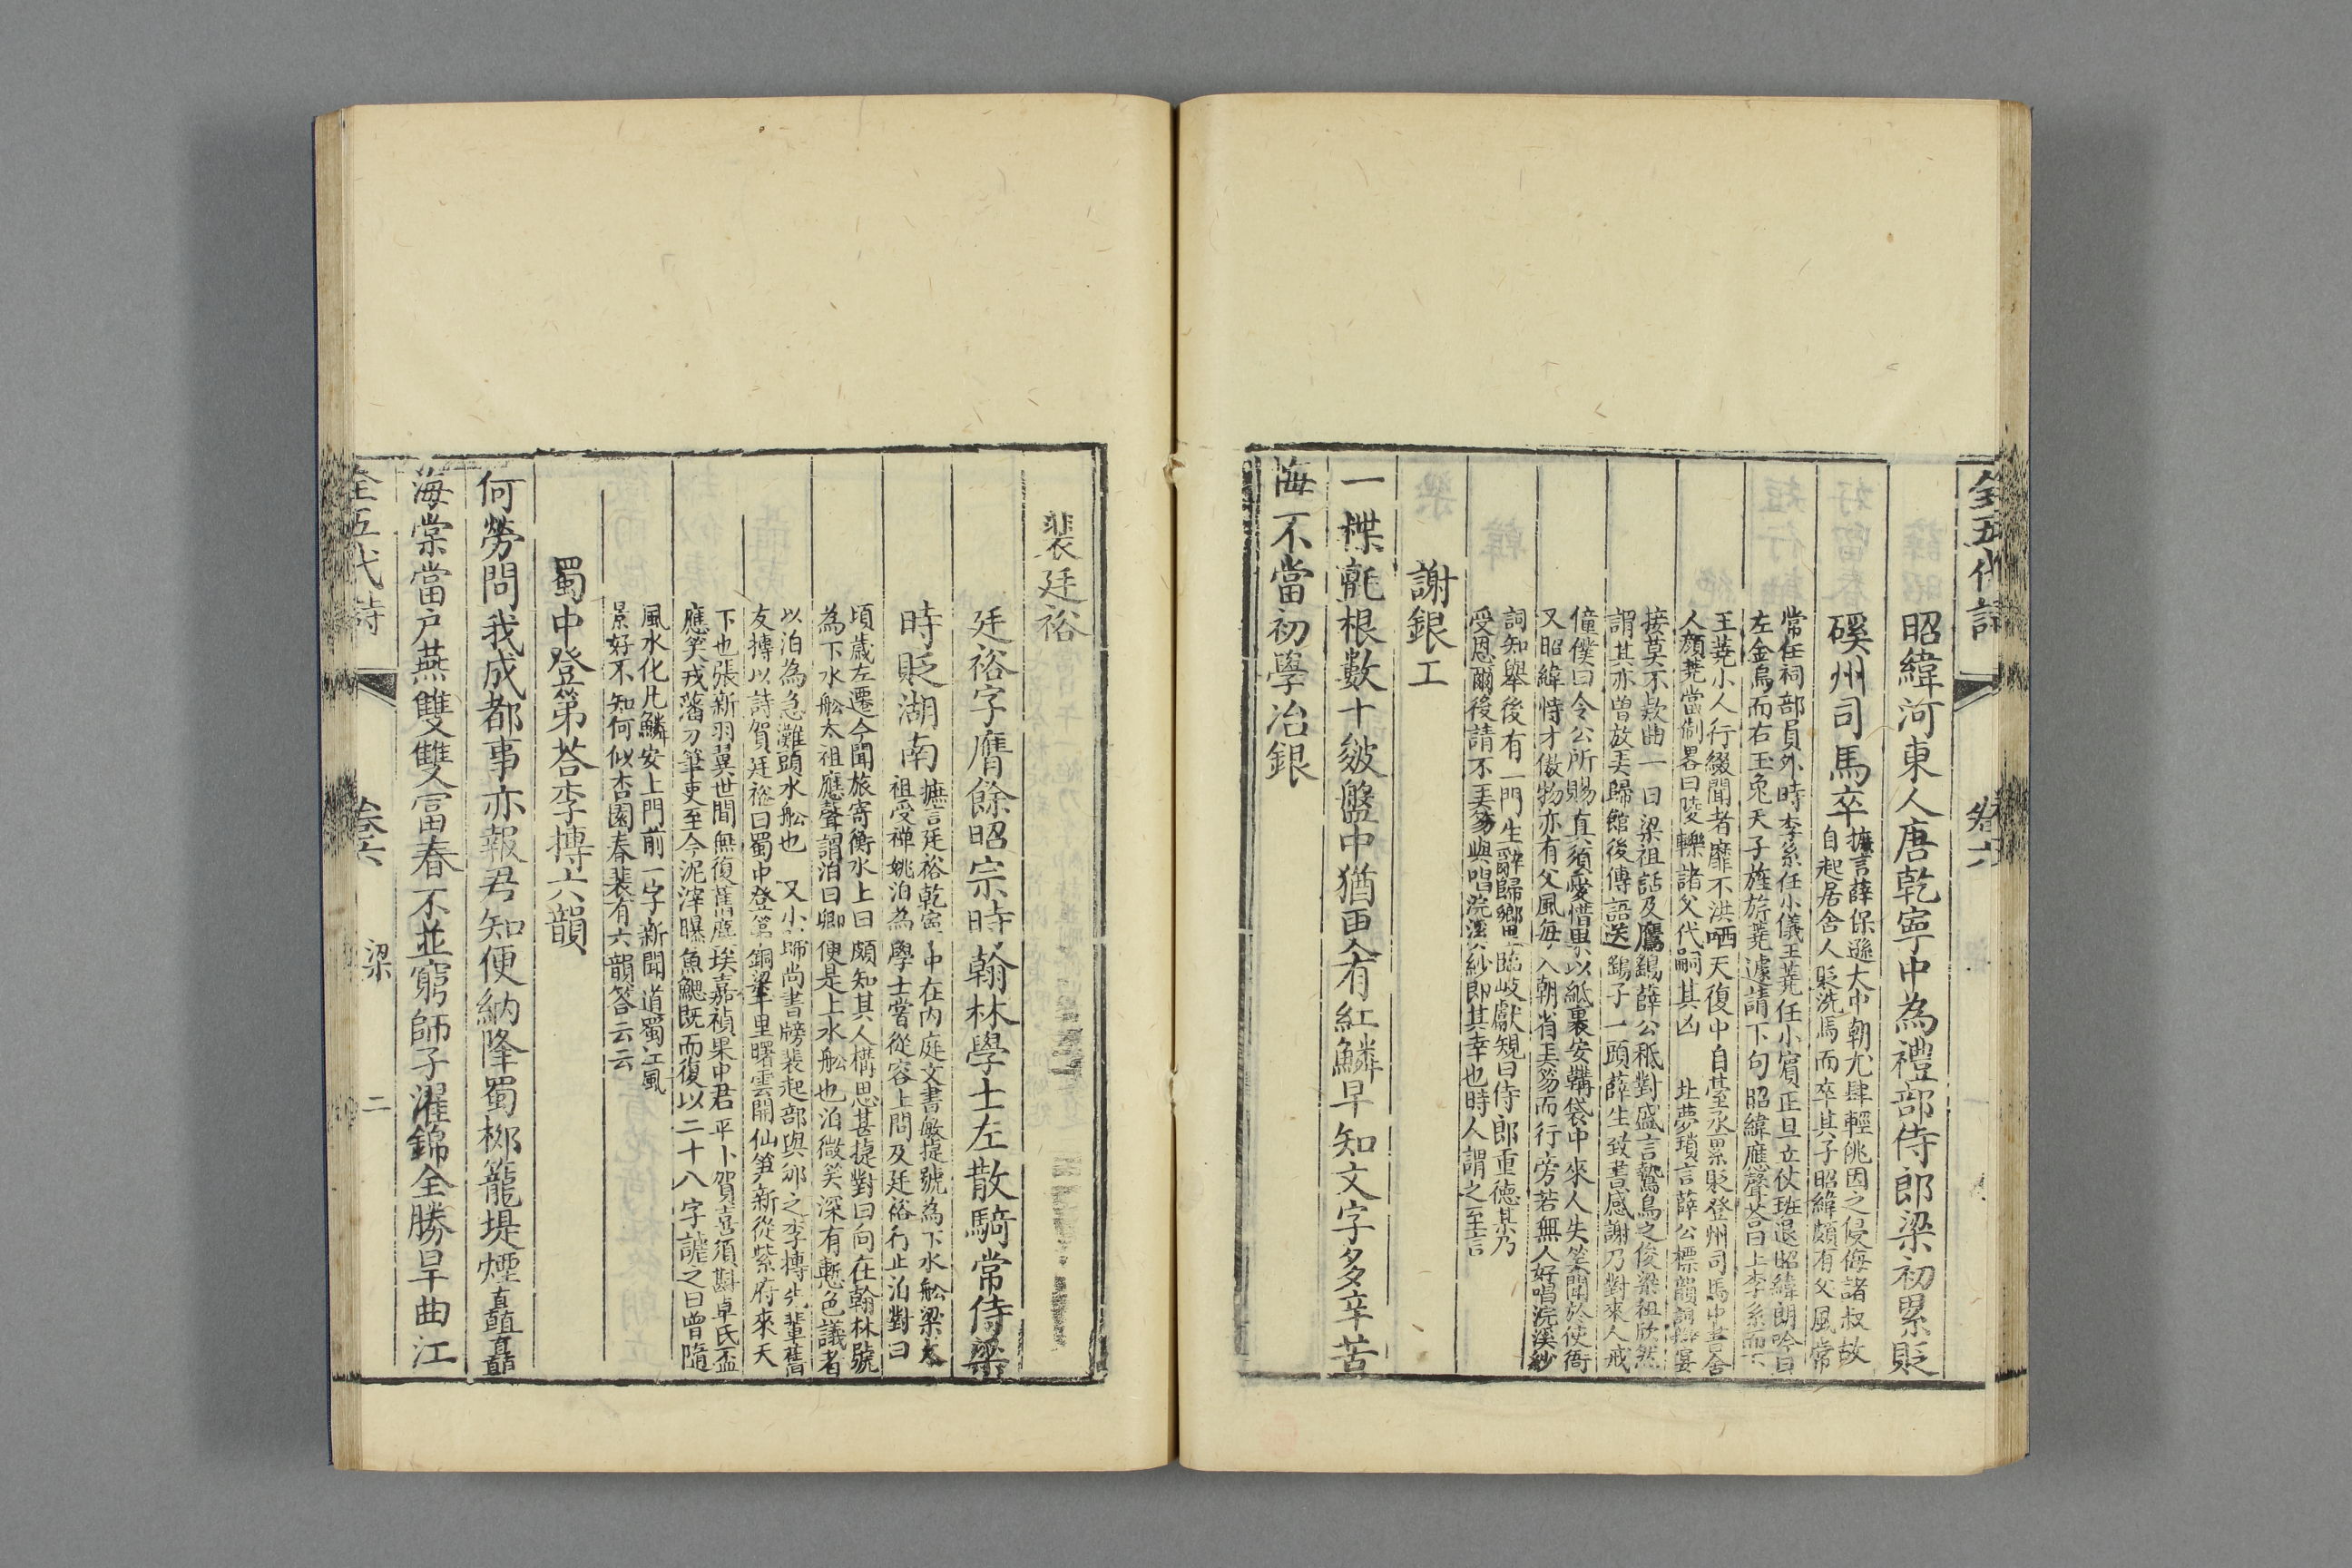 全五代詩
卷六
昭緯河東人唐乾寧中為禮部侍郎梁初累貶
磎州司馬卒
摭言薛保遜大中朝尤肆輕佻因之侵侮諸叔故
自起居舍人貶洗馬而卒其子昭緯頗有父風常
常任祠部員外時李系任小儀王蕘任小賓正旦立仗班退昭緯朗吟曰
左金烏而右玉兔天子旌旂蕘遽請下句昭緯應聲荅曰上李系而下
王蕘小人行綴聞者靡不洪哂天復中自臺丞累貶登州司馬中書舍
人顏蕘當制畧曰陵轢諸父代嗣其凶　北夢瑣言薛公標韻詞辯宴
接莫不款曲一日梁祖話及鷹鷂薛公秪對盛言鷙鳥之俊梁祖欣然
謂其亦曾放弄歸館後傳語送鷂子一頭薛生致書感謝乃對來人戒
僮僕曰令公所賜真須愛惜果以紙裹安鞲袋中來人失笑聞於使衙
又昭緯恃才傲物亦有父風每入朝省弄笏而行旁若無人好唱浣溪紗
詞知舉後有一門生辭歸鄉里臨岐獻規曰侍郎重德某乃
受恩爾後請不弄笏與唱浣溪紗即其幸也時人謂之至言
謝銀工
一楪氈根數十皴盤中猶更有紅鱗早知文字多辛苦
悔不當初學冶銀
裴廷裕
廷裕字膺餘昭宗時翰林學士左散騎常侍梁
時貶湖南
摭言廷裕乾寧中在內庭文書敏捷號為下水船梁太
祖受禪姚洎為學士嘗從容上問及廷裕行止洎對曰
頃歲左遷今聞旅寄衡水上曰頗知其人構思甚捷對曰向在翰林號
為下水船太祖應聲謂洎曰卿便是上水船也洎微笑深有慙色議者
以洎為急灘頭水船也　又小歸尚書牓裴起部與邠之李摶先輩舊
友摶以詩賀廷裕曰蜀中登第銅梁千里曙雲開仙籙新從紫府來天
下也張新羽翼世間無復舊塵埃嘉禎果中君平卜賀喜須斟卓氏盃
應笑戎藩刀筆吏至今泥滓曝魚鰓既而復以二十八字謔之曰曾隨
風水化凡鱗安上門前一字新聞道蜀江風
景好不知何似杏園春裴有六韻答云云
蜀中登第荅李摶六韻
何勞問我成都事亦報君知便納降蜀柳籠堤煙矗矗
海棠當戶燕雙雙富春不並窮師子濯錦全勝旱曲江
全五代詩
卷六
梁
二